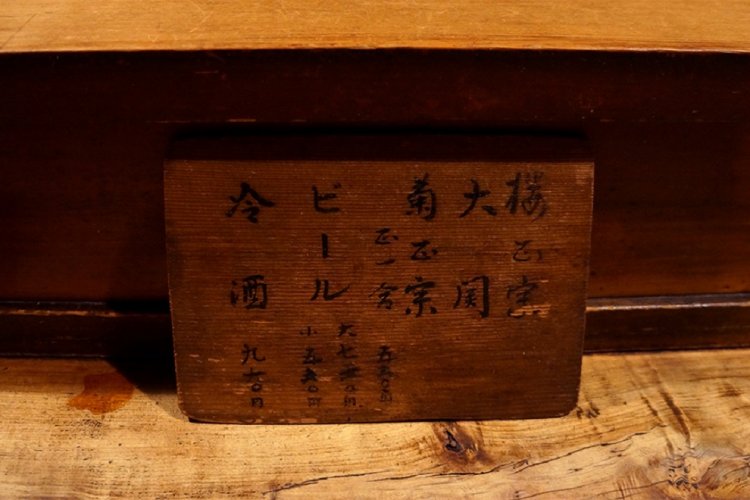 櫻正宗
大関
菊正宗
正一合 五五〇円
ビール 大七五〇円
小五五〇円
冷酒 九七〇円